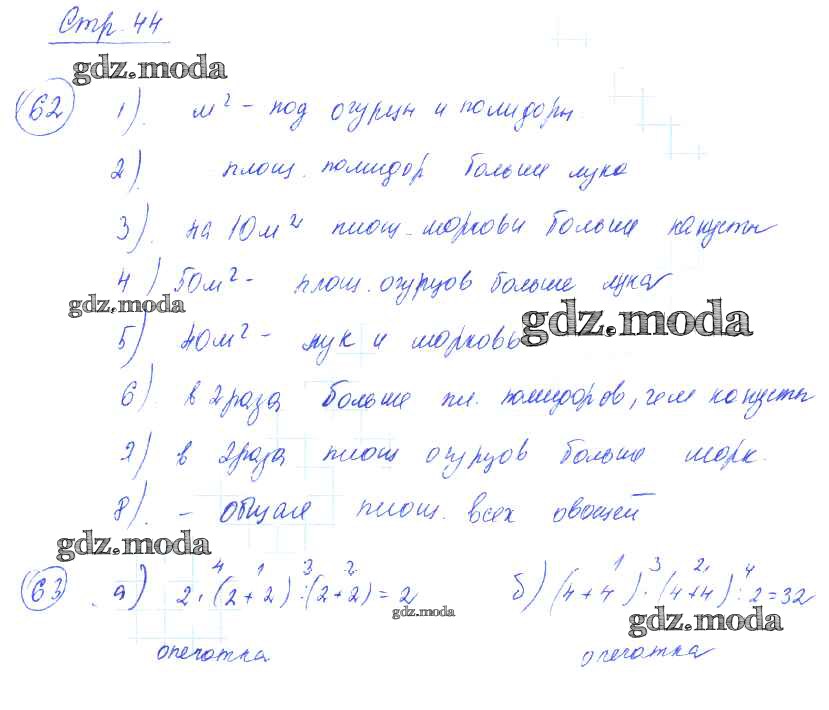 Стр. 44
gdz.moda
62 1). м² - под огурцы и помидоры.
2). площ. помидор больше лука
3). на 10м² площ. моркови больше капусты
4) 50м² - площ. огурцов больше лука
gdz.moda
gdz.moda
5) 40м² - лук и морковь
6). в 2 раза больше пл. помидоров, чем капусты
7) в 2раза площ огурцов больше морк.
8). - общая площ. всех овощей
gdz.moda
4 1 3 2 1 3 2 4
63 а) 2·(2+2):(2+2)=2 б) (4+4)·(4+4):2=32
gdz.moda
gdz.moda
опечатка опечатка